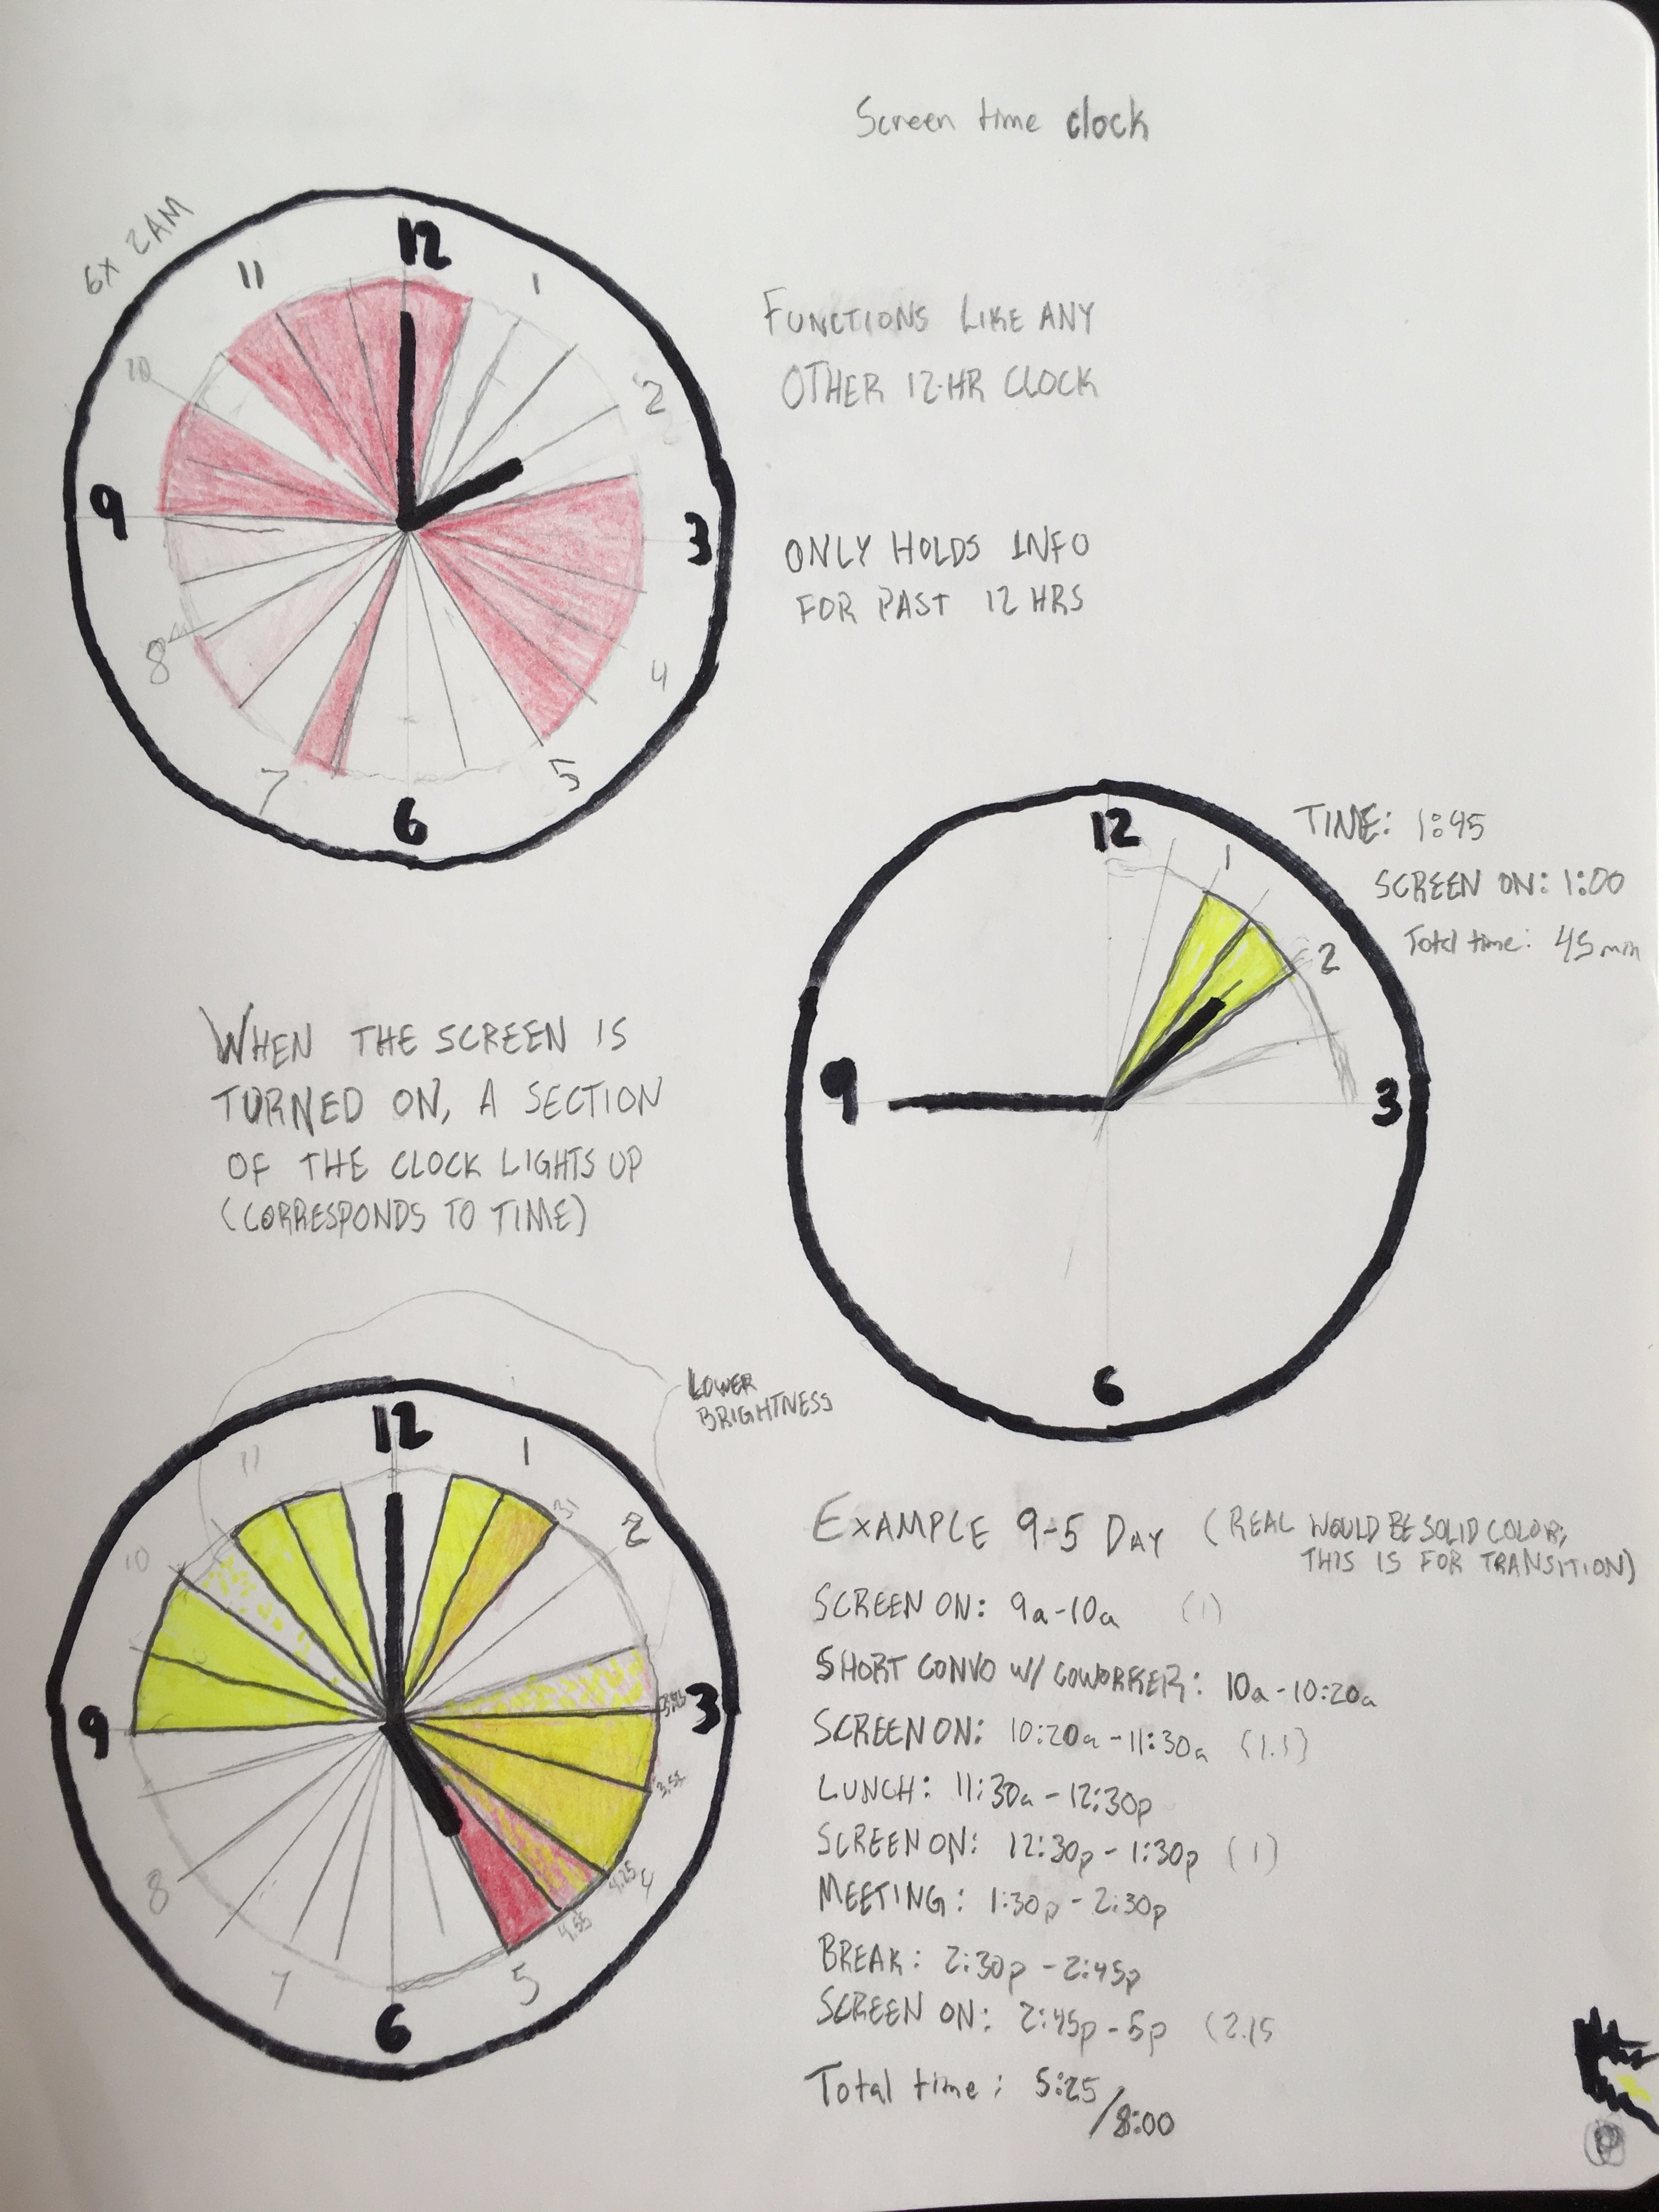 Screen time clock
6x 2AM
12
11
1
10
2
9
3
8
4
7
5
6
FUNCTIONS LIKE ANY
OTHER 12-HR CLOCK
ONLY HOLDS INFO
FOR PAST 12 HRS
12
1
2
9
3
6
TIME: 1:45
SCREEN ON: 1:00
Total time: 45 min
WHEN THE SCREEN IS
TURNED ON, A SECTION
OF THE CLOCK LIGHTS UP
(CORRESPONDS TO TIME)
LOWER
BRIGHTNESS
12
11
1
10
2
9
3
8
4
4.25
4.55
7
5
6
EXAMPLE 9-5 DAY (REAL WOULD BE SOLID COLOR;
THIS IS FOR TRANSITION)
SCREEN ON: 9a-10a (1)
SHORT CONVO W/ COWORKER: 10a-10:20a
SCREEN ON: 10:20a-11:30a (1.1)
LUNCH: 11:30a-12:30p
SCREEN ON: 12:30p-1:30p (1)
MEETING: 1:30p-2:30p
BREAK: 2:30p-2:45p
SCREEN ON: 2:45p-5p (2.15
Total time: 5:25
/8:00